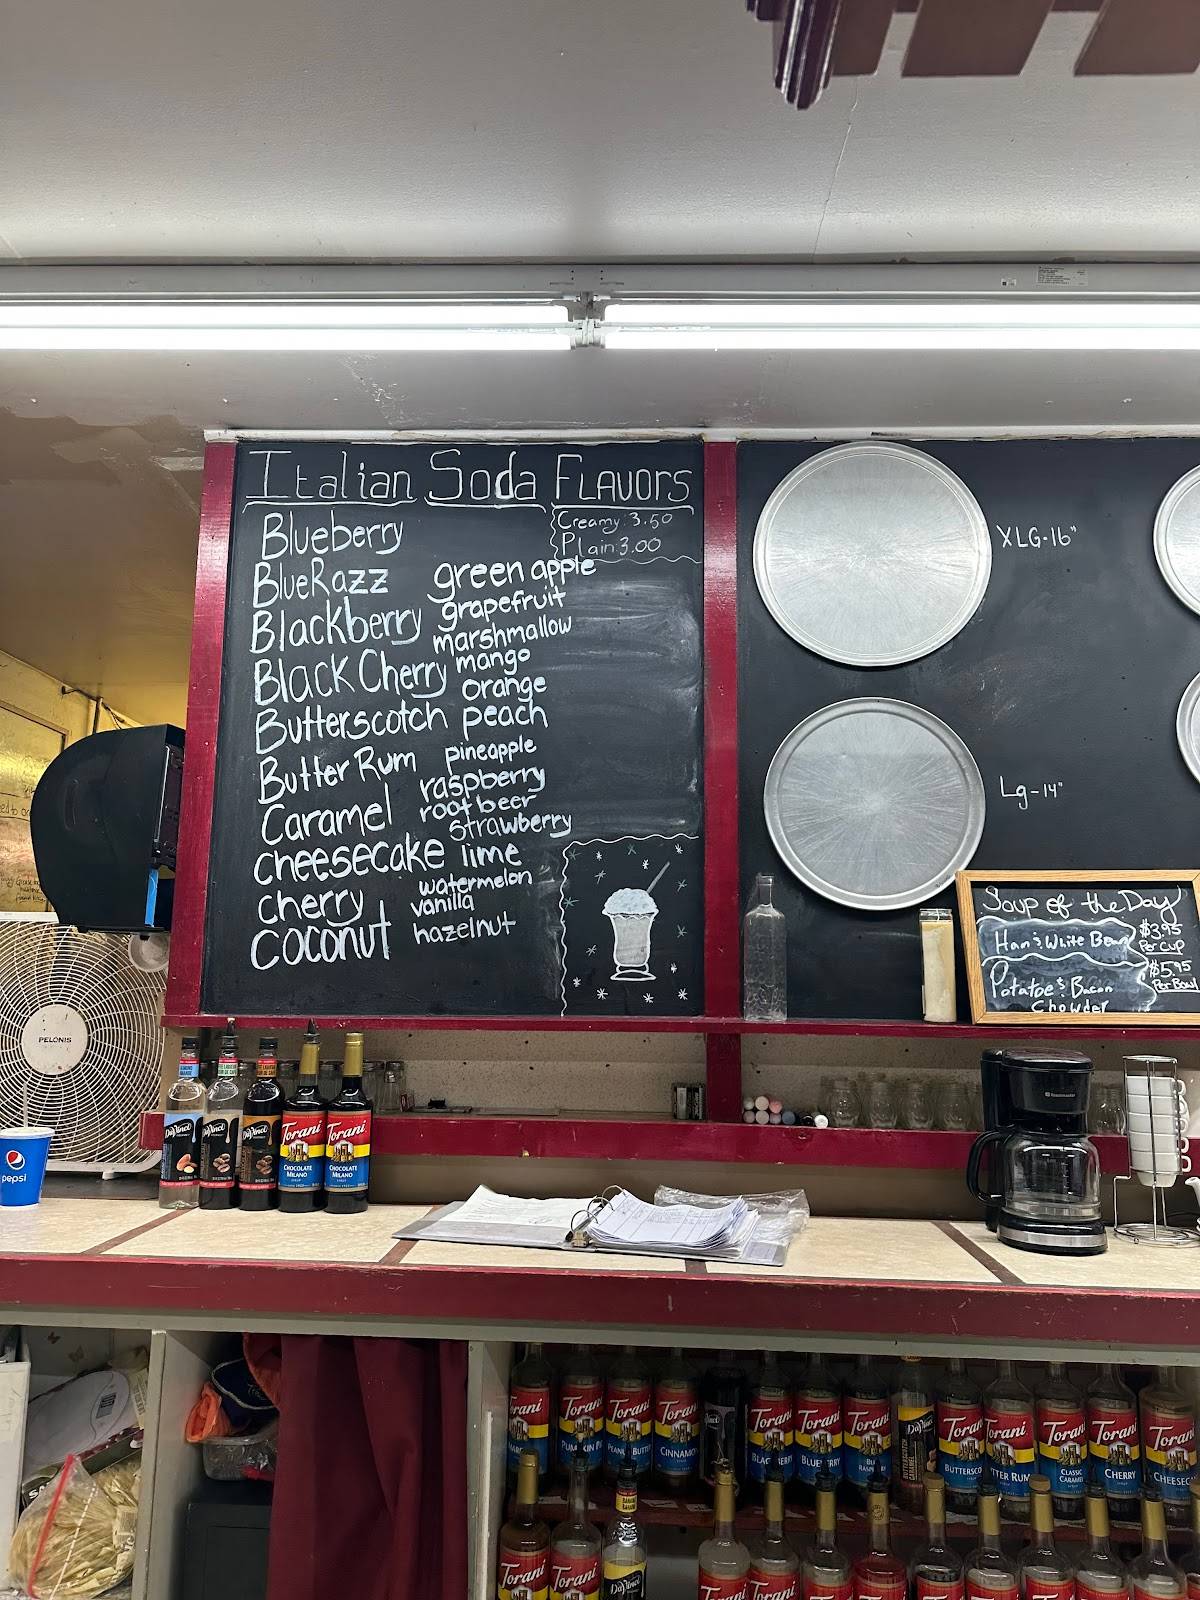 Italian Soda Flavors
Creamy: 3.50
Plain: 3.00
Blueberry
BlueRazz
Blackberry
Black Cherry
Butterscotch
Butter Rum
Caramel
cheesecake
cherry
coconut
green apple
grapefruit
marshmallow
mango
orange
peach
pineapple
raspberry
root beer
strawberry
lime
watermelon
vanilla
hazelnut
XLG-16"
Lg-14"
Soup of the Day
Ham & White Bean
$3.95
Per Cup
Potatoe & Bacon
Chowder
$5.95
Per Bowl
PELONIS
pepsi
DaVinci
DaVinci
DaVinci
Torani
CHOCOLATE
MILANO
Torani
CHOCOLATE
MILANO
Torani
Torani
Torani
PEANUT BUTTER
Torani
CINNAMON
Torani
BLACKBERRY
Torani
BLUEBERRY
Torani
BLUE
RASPBERRY
DaVinci
BUTTERSCOTCH
CARAMEL
Torani
BUTTERSCO
Torani
TTER RUM
Torani
CLASSIC
CARAMEL
Torani
CHERRY
Torani
CHEESEC
Torani
Torani
DaVinci
Torani
Torani
Torani
Torani
Torani
Torani
Torani
Torani